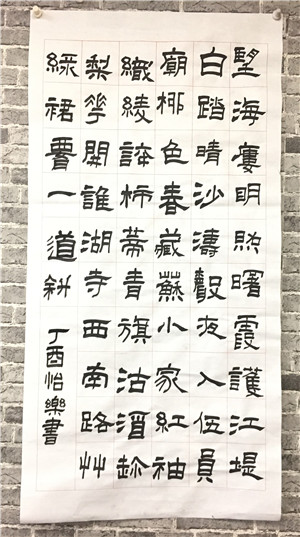 望海樓明照曙霞護江堤
白踏晴沙濤聲夜入伍員
廟柳色春藏蘇小家紅袖
織綾誇柿蒂青旗沽酒趁
梨花開誰湖寺西南路艸
綠裙腰一道斜
丁酉怡樂書